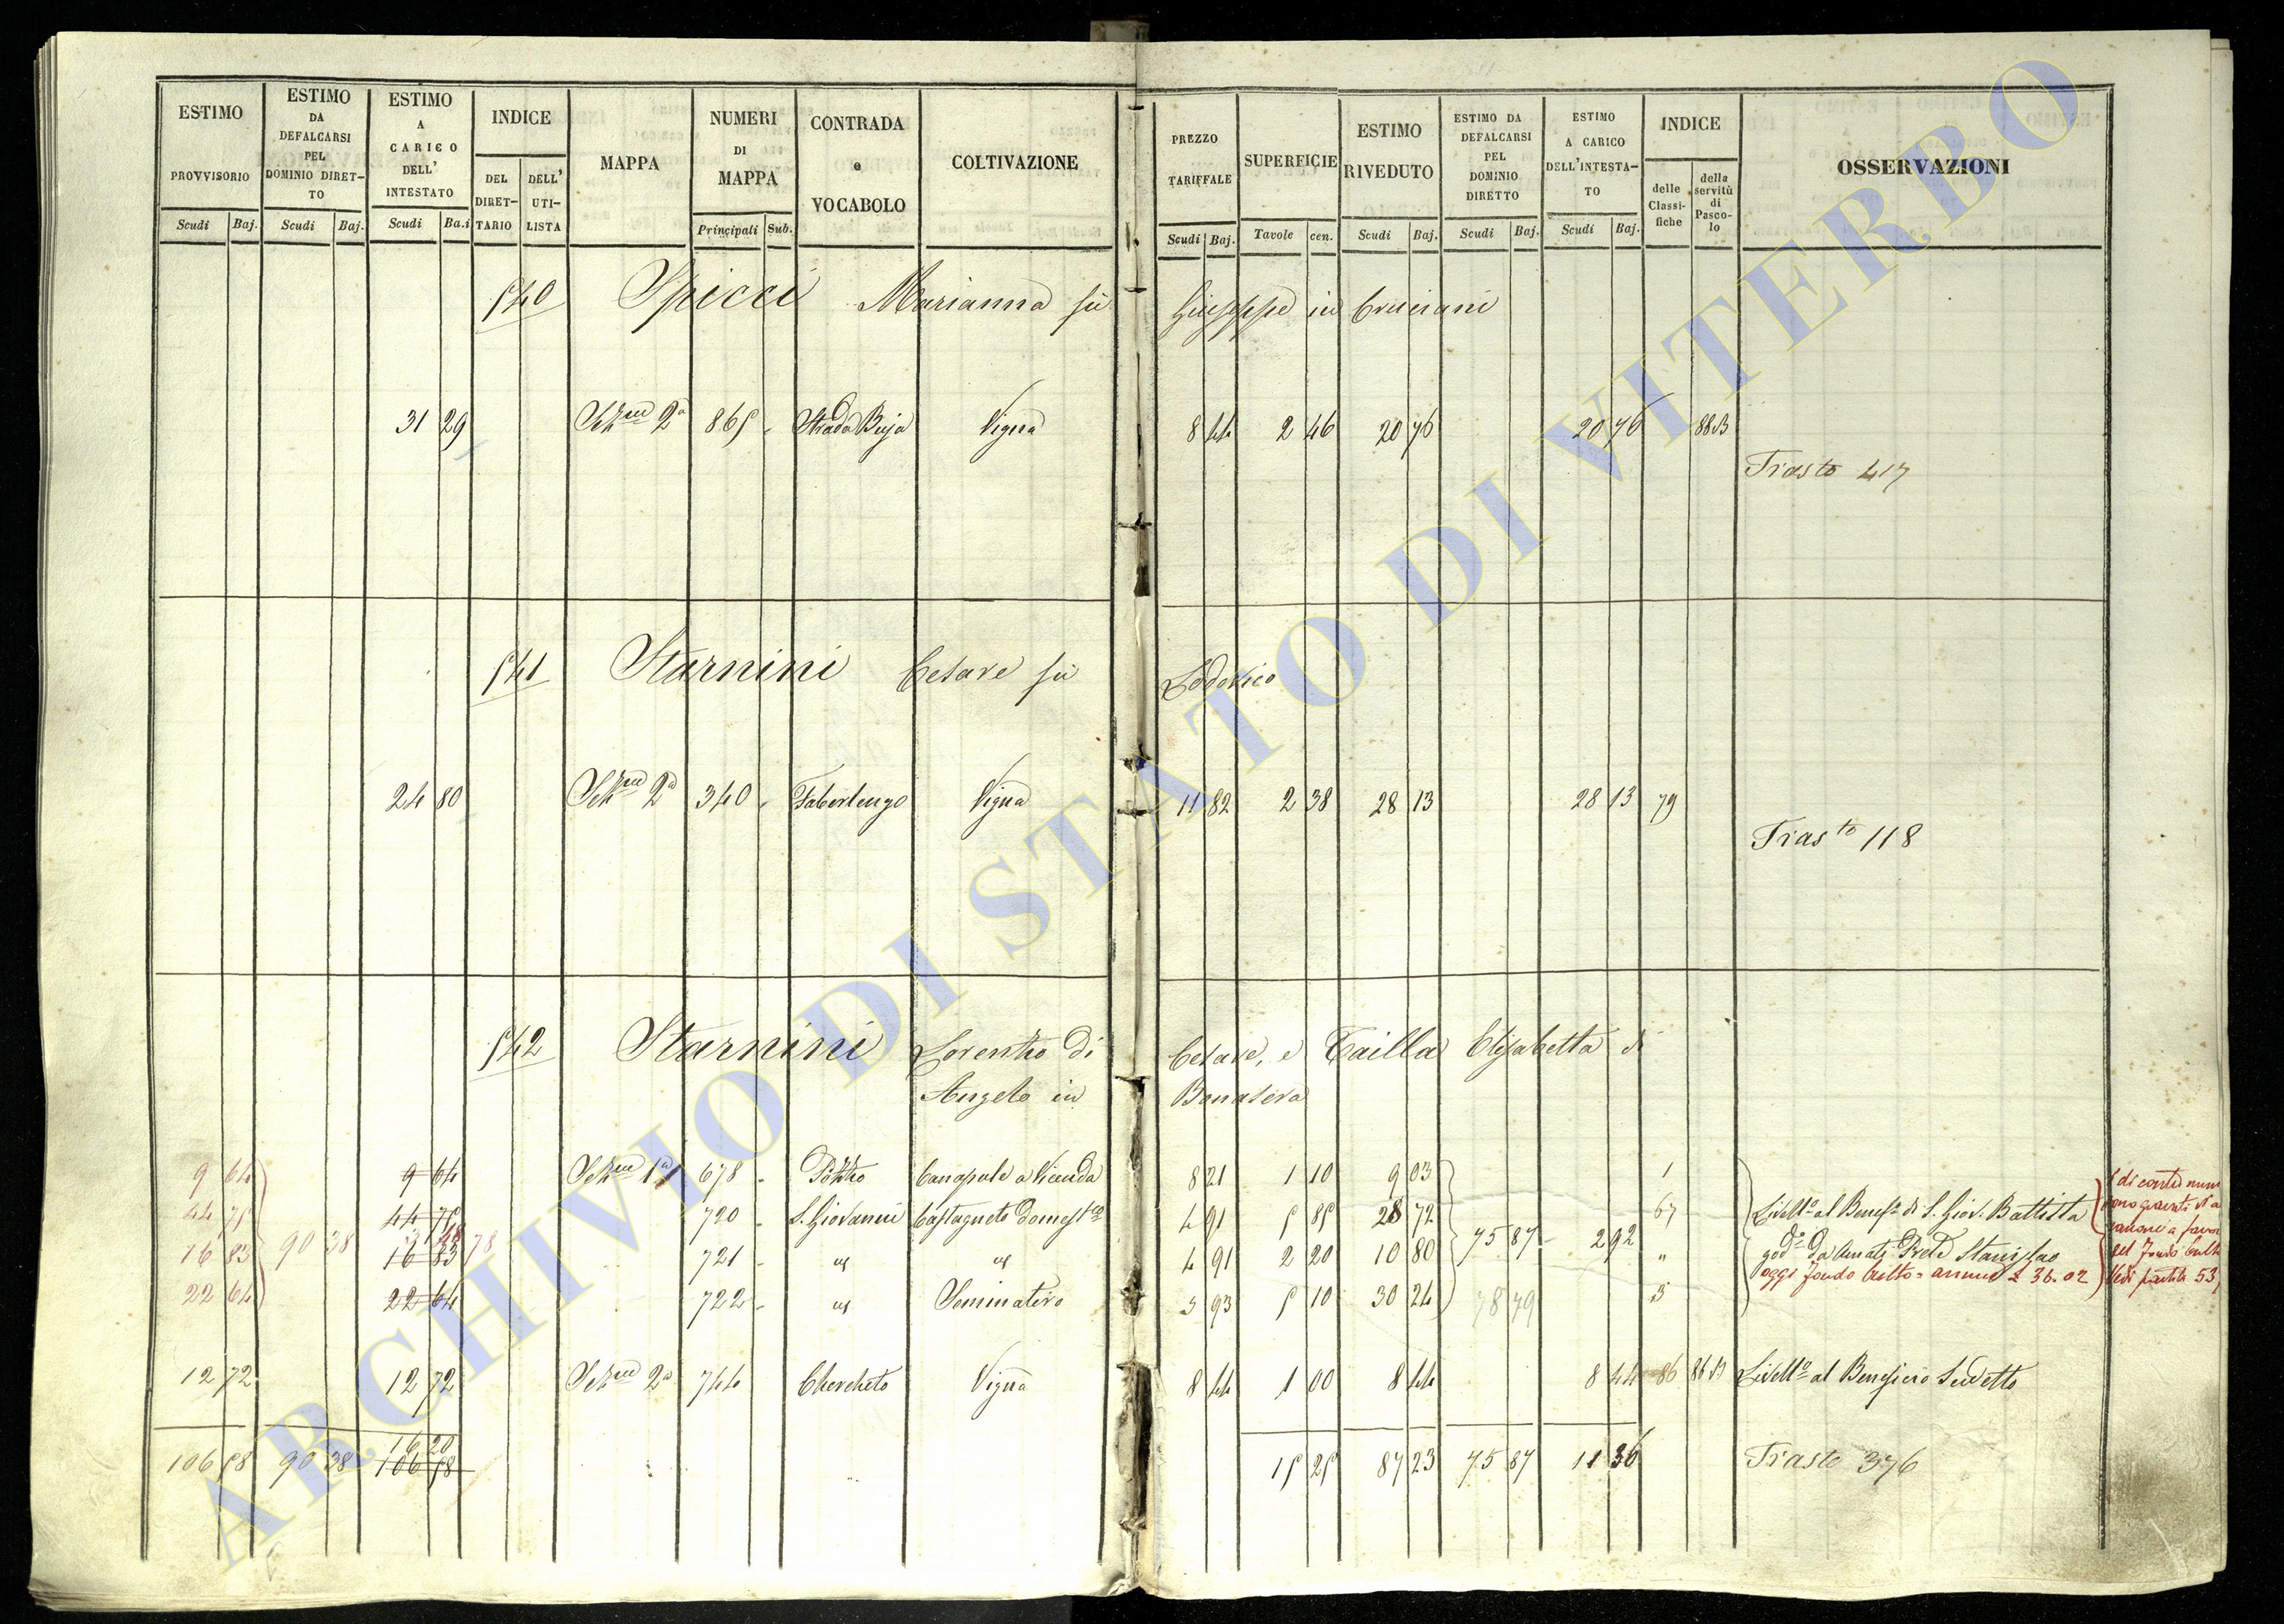 ESTIMO PROVVISORIO Scudi Baj.
ESTIMO DA DEFALCARSI PEL DOMINIO DIRETTO Scudi Baj.
ESTIMO A CARICO DELL' INTESTATO Scudi Ba.i
INDICE DEL DIRETTARIO DELL' UTILISTA
MAPPA
NUMERI DI MAPPA Principali Sub.
CONTRADA e VOCABOLO
COLTIVAZIONE
PREZZO TARIFFALE Scudi Baj.
SUPERFICIE Tavole cen.
ESTIMO RIVEDUTO Scudi Baj.
ESTIMO DA DEFALCARSI PEL DOMINIO DIRETTO Scudi Baj.
ESTIMO A CARICO DELL'INTESTATO Scudi Baj.
INDICE delle Classifiche della servitù di Pascolo
OSSERVAZIONI
540 Spicci Marianna fù Giuseppe in Cruciani
31 29 Sez.ne 2a 865 Strada Buja Vigna 8 44 2 46 20 76 20 76 88B
Trasto 417
541 Starnini Cesare fù Lodovico
24 80 Sez.ne 2a 340 Faberlengo Vigna 11 82 2 38 28 13 28 13 79
Tras.to 118
542 Starnini Lorenzo di Cesare, e Tailla Elisabetta di
Angelo in Bonasera
9 64 9 64 Sez.ne 1a 678 Pozzo Canapule a Vicenda 8 21 1 10 9 03 1
44 75 44 75 720 S. Giovanni Castagneto domest.co 4 91 5 85 28 72 67 Livell.o al Benef.o di S. Giov. Battista
16 83 90 38 16 83 78 721 " " 4 91 2 20 10 80 75 87 2 92 " god.o da Amati Stanislao
22 64 22 64 722 " Seminativo 5 93 5 10 30 24 78 79 3 oggi fondo Culto = annue £ 36.02
Vedi partita 53
12 72 12 72 Sez.ne 2a 744 Chercheto Vigna 8 44 1 00 8 44 8 44 86 86B Livell.o al Beneficio Sudetto
16 20
106 58 90 38 106 58 15 25 87 23 75 87 11 36 Trasto 376
ARCHIVIO DI STATO DI VITERBO